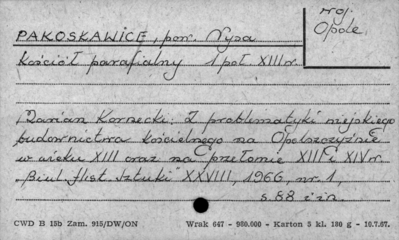 PAKOSŁAWICE, pow. Nysa
Woj.
Opole
Kościół parafialny 1 poł. XIII w.
Marian Kornecki: Z problematyki miejskiego
budownictwa kościelnego na Opolszczyźnie
w wieku XIII oraz na przełomie XIII i XIV w.
"Biul. Hist. Sztuki" XXVIII, 1966, nr. 1,
s. 88 i n.
CWD B 15b Zam. 915/DW/ON Wrak 647 - 950.000 - Karton 3 kl. 180 g - 10.7.67.